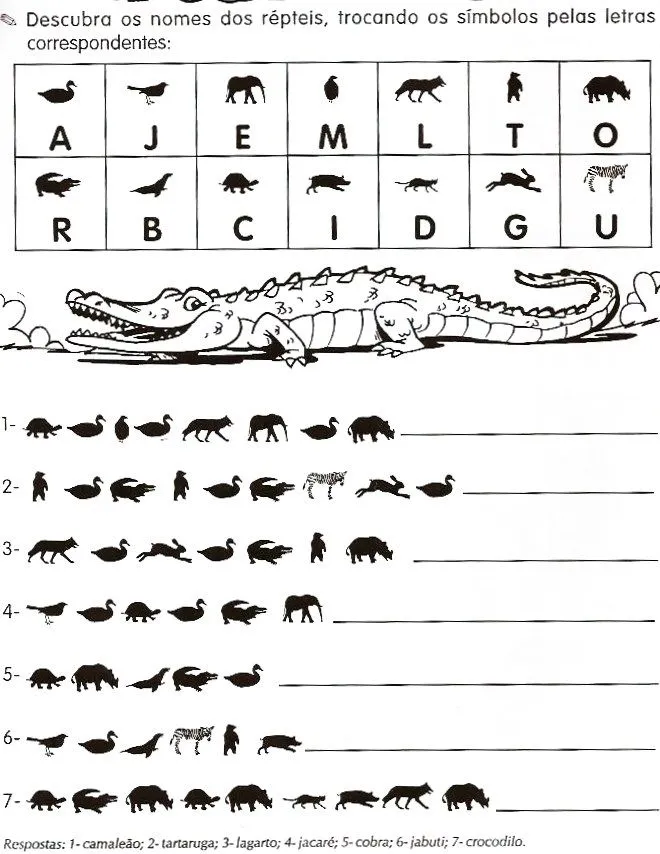 Descubra os nomes dos répteis, trocando os símbolos pelas letras
correspondentes:
A J E M L T O
R B C I D G U
1-
2-
3-
4-
5-
6-
7-
Respostas: 1- camaleão; 2- tartaruga; 3- lagarto; 4- jacaré; 5- cobra; 6- jabuti; 7- crocodilo.